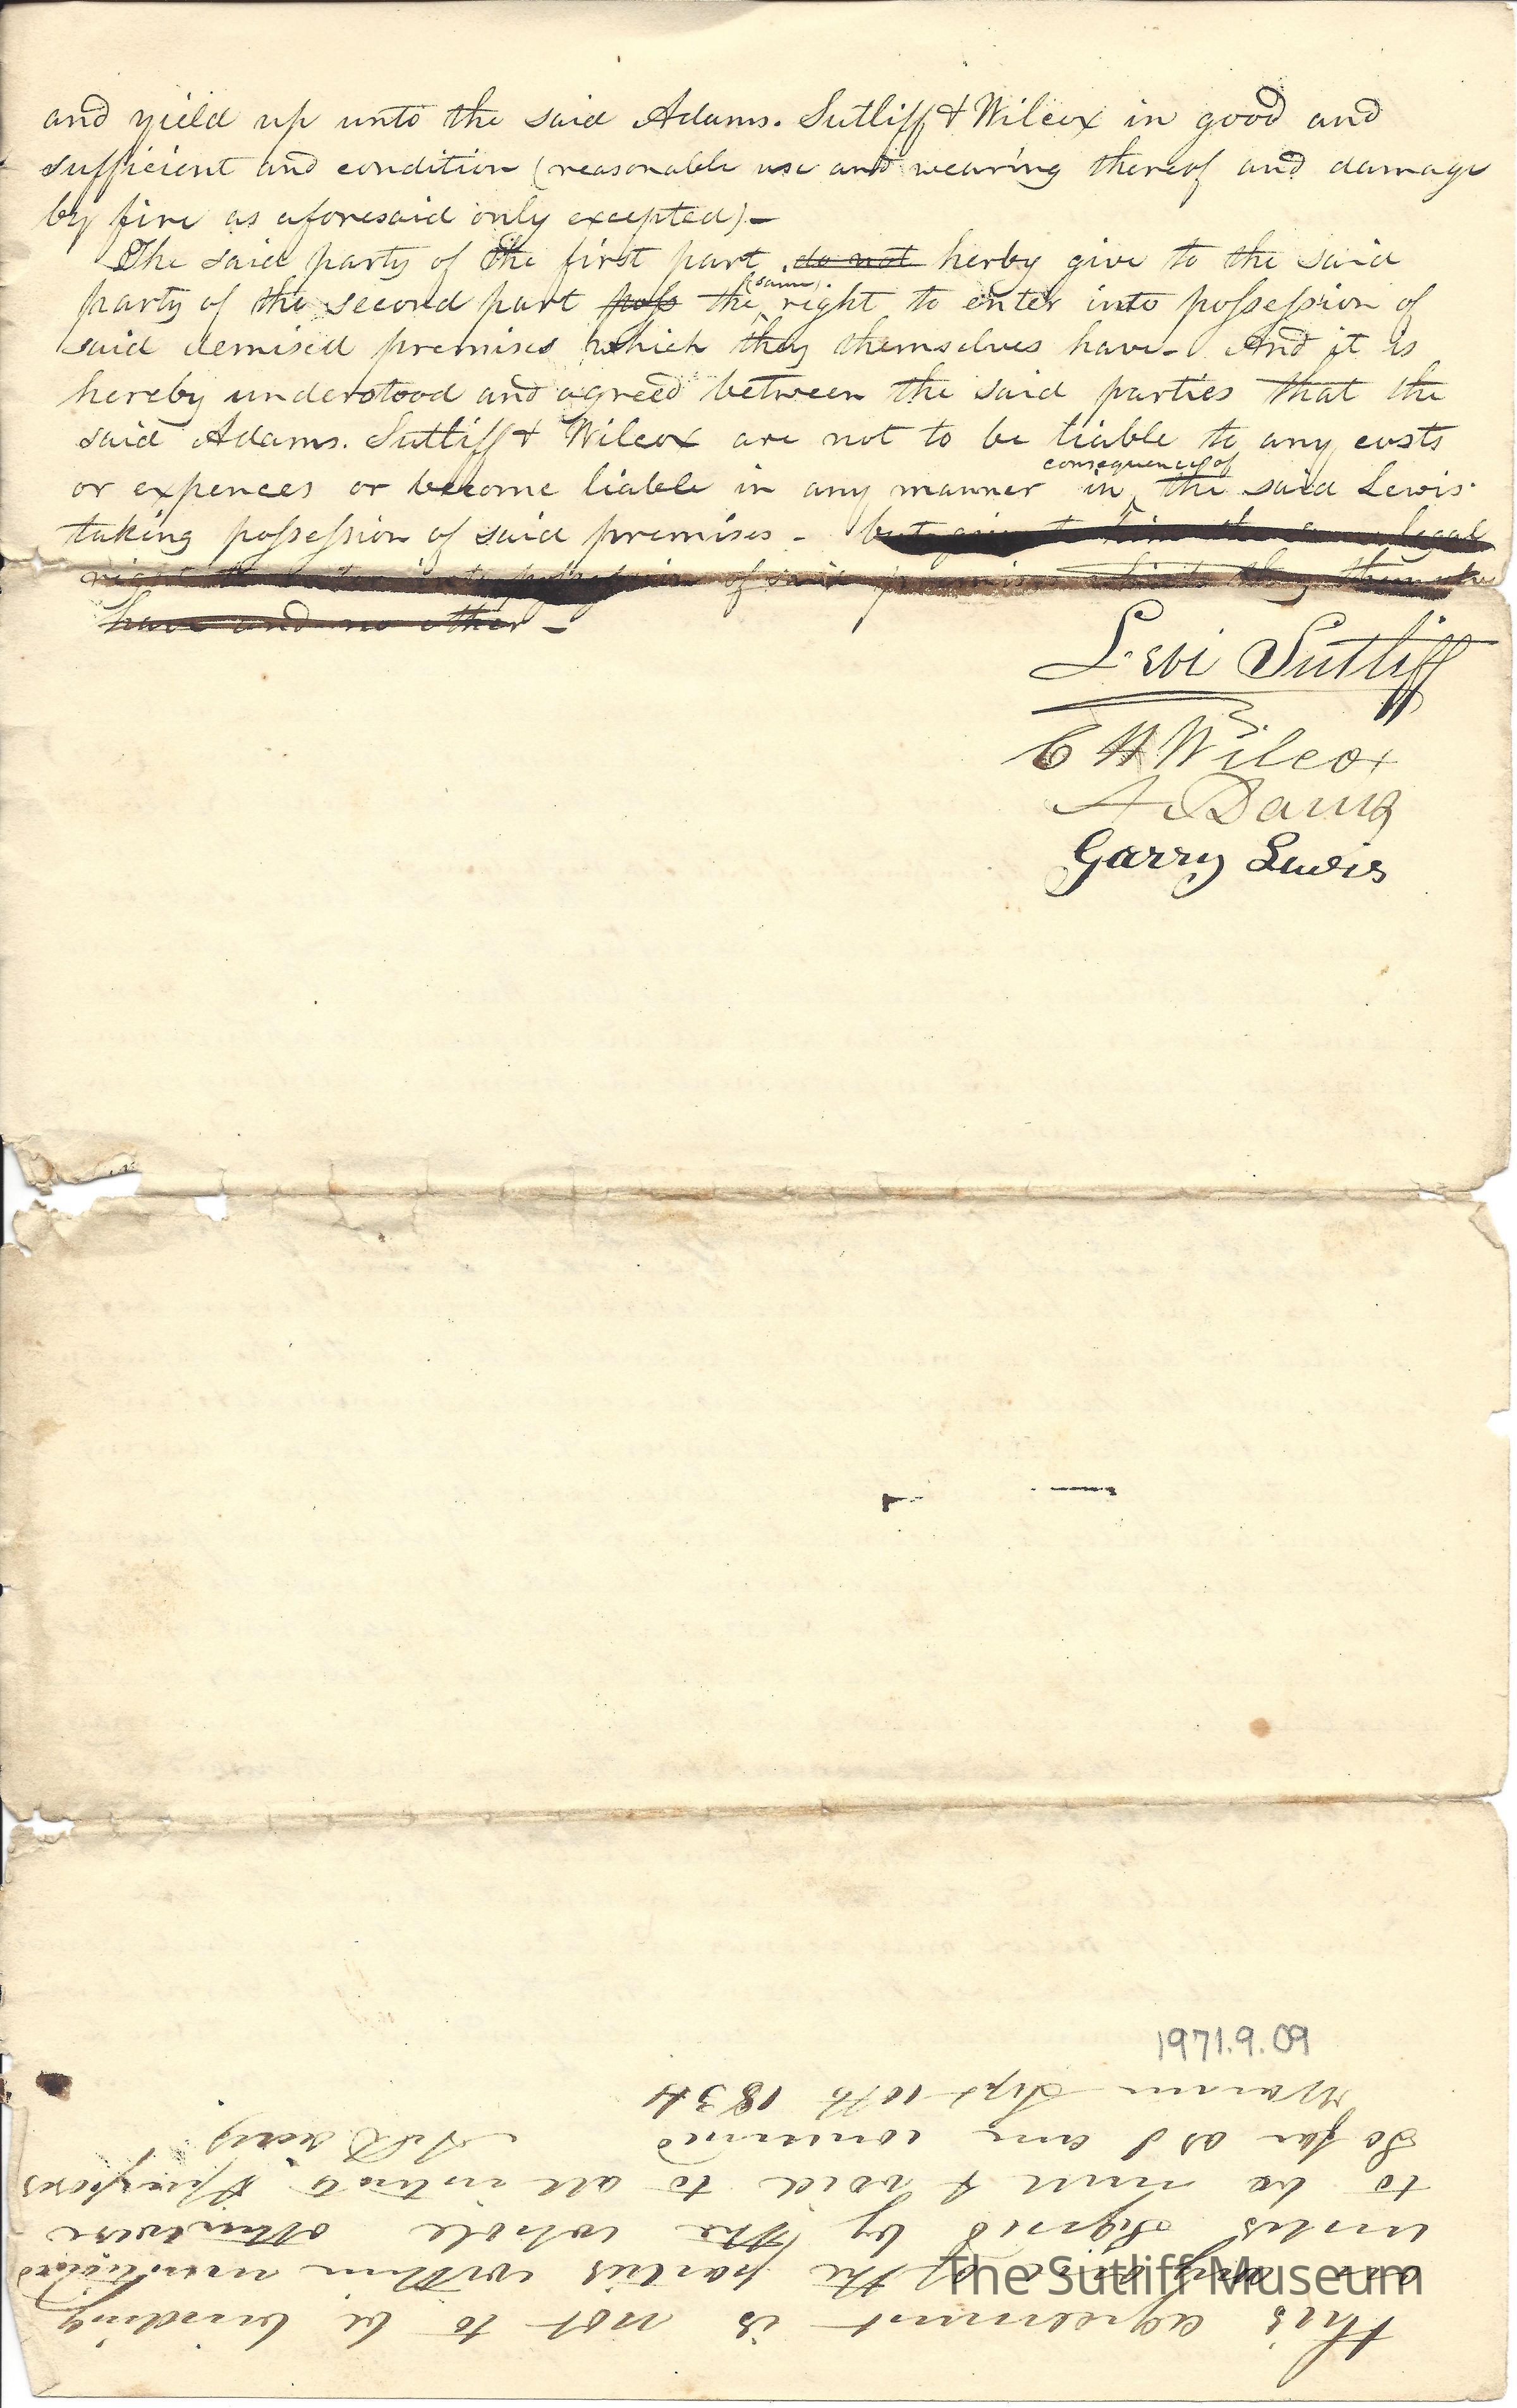 and yield up unto the said Adams. Sutliff & Wilcox in good and
sufficient and condition (reasonable use and wearing thereof and damage
by fire as aforesaid only excepted) -
The said party of the first part do not herby give to the said
party of the second part poss the (same) right to enter into possession of
said demised premises which they themselves have - And it is
hereby understood and agreed between the said parties that the
said Adams. Sutliff & Wilcox are not to be liable to any costs
or expences or become liable in any manner in consequence of the said Lewis
taking possession of said premises - but give to him the legal
right to enter into possession of said premises which they themselves
have and no other -
Levi Sutliff
C H Wilcox
A
Garry Lewis
1971.9.09
this agreement is not to be binding
on any one of the parties within mentioned
unless Signed by the whole otherwise
to be null & void to all intents & purposes
So far as I am concerned
Warren Sept 10th 1834
The Sutliff Museum